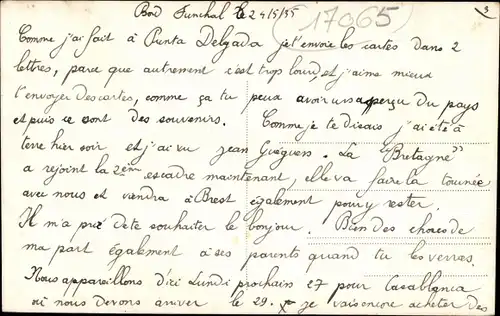 Bord Funchal le 24/5/35
17065
3
Comme j'ai fait à Punta Delgada je t'envoie les cartes dans 2
lettres, parce que autrement c'est trop lourd, et j'aime mieux
t'envoyer des cartes, comme ça tu peux avoir un aperçu du pays
et puis ce sont des souvenirs. Comme je te disais j'ai été à
terre hier soir et j'ai vu Jean Guéguen. La "Bretagne"
a rejoint la 2ème escadre maintenant, elle va faire la tournée
avec nous et viendra à Brest également pour y rester.
Il m'a prié de te souhaiter le bonjour. Bien des choses de
ma part également à ses parents quand tu les verras.
Nous appareillons d'ici Lundi prochain 27 pour Casablanca
où nous devons arriver le 29. je vais encore acheter des